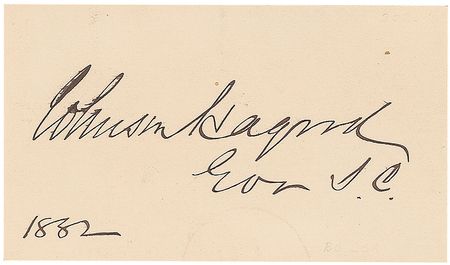 Johnson Hagood
Gov S.C.
1882